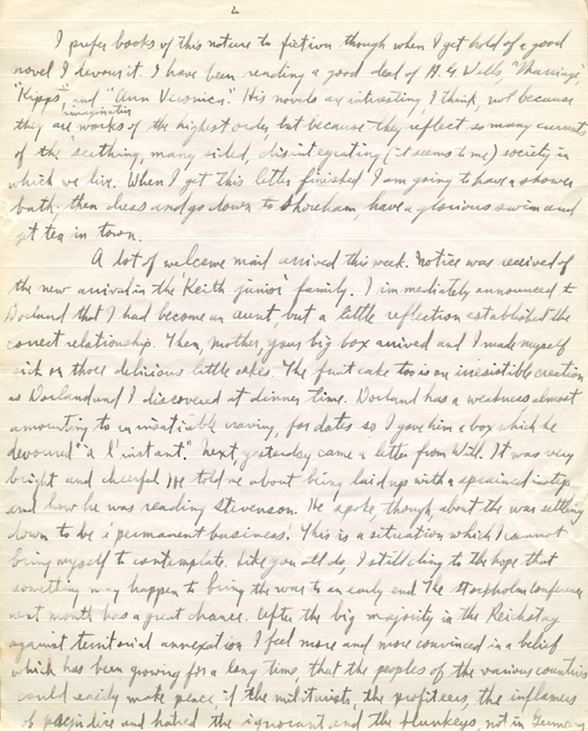 2
I prefer books of this nature to fiction though when I get hold of a good
novel I devour it. I have been reading a good deal of H.G. Wells, "Marriage"
"Kipps", and "Ann Veronica". His novels are interesting I think, not because
imaginative
they are works of the highest order, but because they reflect so many currents
of the seething, many sided, disintegrating (it seems to me) society in
which we live. When I get this letter finished I am going to have a shower
bath, then dress and go down to Shoreham, have a glorious swim and
get tea in town.
A lot of welcome mail arrived this week. Notice was received of
the new arrival in the 'Keith junior' family. I immediately announced to
Dorland that I had become an aunt, but a little reflection established the
correct relationship. Then, Mother, your big box arrived and I made myself
sick on those delicious little cakes. The fruit cake too is an irresistible creation
as Dorland and I discovered at dinner time. Dorland has a weakness almost
amounting to an insatiable craving, for dates so I gave him a box which he
devoured "a l'instant". Next, yesterday came a letter from Will. It was very
bright and cheerful. He told me about being laid up with a sprained instep
and how he was reading Stevenson. He spoke, though, about the war settling
down to be a 'permanent business'. This is a situation which I cannot
bring myself to contemplate. Like you all do, I still cling to the hope that
something may happen to bring the war to an early end. The Stockholm conference
next month has a great chance. After the big majority in the Reichstag
against territorial annexation I feel more and more convinced in a belief
which has been growing for a long time, that the peoples of the various countries
could easily make peace, if the militarists, the profiteers, the inflamers
of prejudice and hatred, the ignorant and the flunkeys, not in Germany